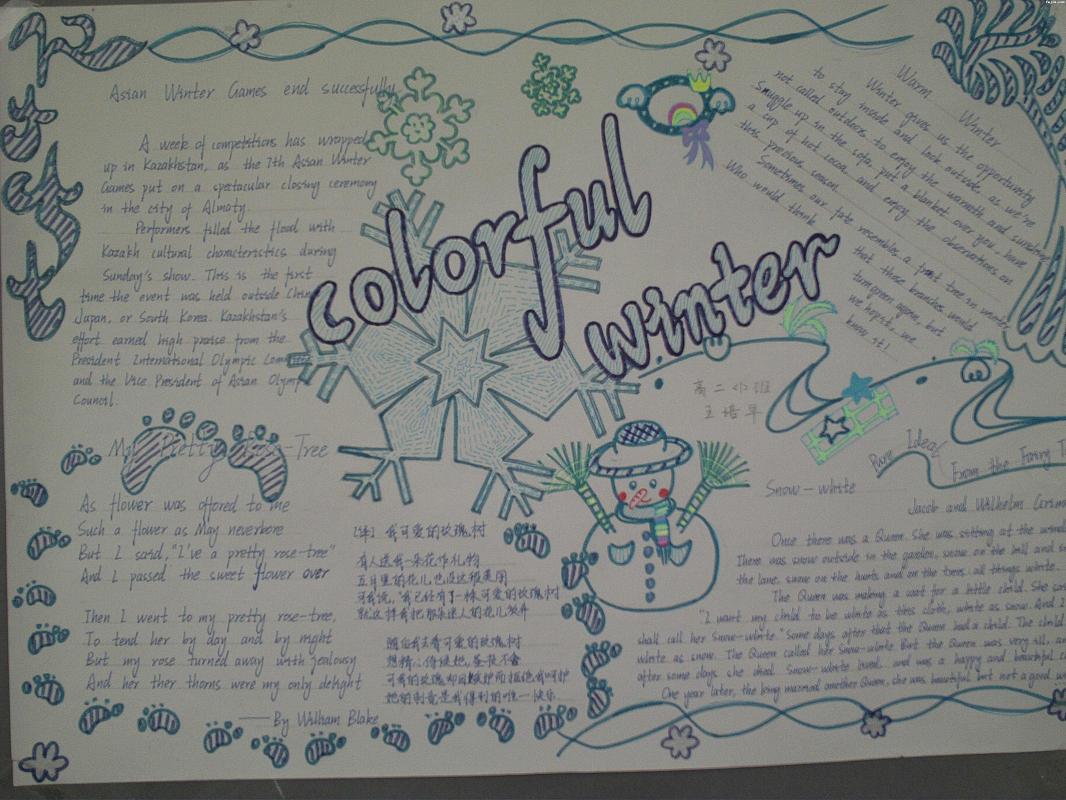 Asian Winter Games end successfully
A week of competitions has wrapped
up in Kazakhstan, as the 7th Asian Winter
Games put on a spectacular closing ceremony
in the city of Almaty.
Performers filled the flood with
Kazakh cultural characteristics during
Sunday's show. This is the first
time the event was held outside China
Japan, or South Korea. Kazakhstan's
effort earned high praise from the
President International Olympic Committee
and the Vice President of Asian Olympic
Council.
colorful
winter
Warm Winter
Winter gives us the opportunity
to stay inside and look outside as we're
not called outdoors to enjoy the warmth and sunshine
Snuggle up in the sofa, put a blanket over you have
a cup of hot cocoa and enjoy the observations on
this precious season.
Sometimes our fate resembles a fruit tree in winter
Who would think that those branches would
turn green again, but
we hope it, we
know it!
高二小班
My Pretty Rose-Tree
As flower was offered to me
Such a flower as May neverbore
But I said, "I've a pretty rose-tree"
And I passed the sweet flower over
Then I went to my pretty rose-tree,
To tend her by day and by night
But my rose turned away with jealousy
And her ther thorns were my only delight
——By William Blake
我可爱的玫瑰树
有人送我一朵花作礼物
五月里的花儿也没这般美丽
可我说,"我已经有了一株可爱的玫瑰树
就这样我把那朵迷人的花儿放弃
随后我去看可爱的玫瑰树
想精心侍候她,昼夜不舍
可我的玫瑰却因嫉妒而拒绝我呵护
她的刺竟是我得到的唯一快乐
Pure Ideal
From the Fairy T
Snow-white
Jacob and Wilhelm Grimm
Once there was a Queen. She was sitting at the wind
There was snow outside in the garden, snow on the hill and in
the lane, snow on the hunts and on the trees, all things white.
The Queen was making a coat for a little child. She said
"I want my child to be white as this cloth, white as snow. And I
shall call her Snow-white." Some days after that the Queen had a child. The child
white as snow. The Queen called her Snow-white. But the Queen was very ill, and
after some days she died. Snow-white lived, and was a happy and beautiful c
One year later, the king married another Queen, she was beautiful but not a good w